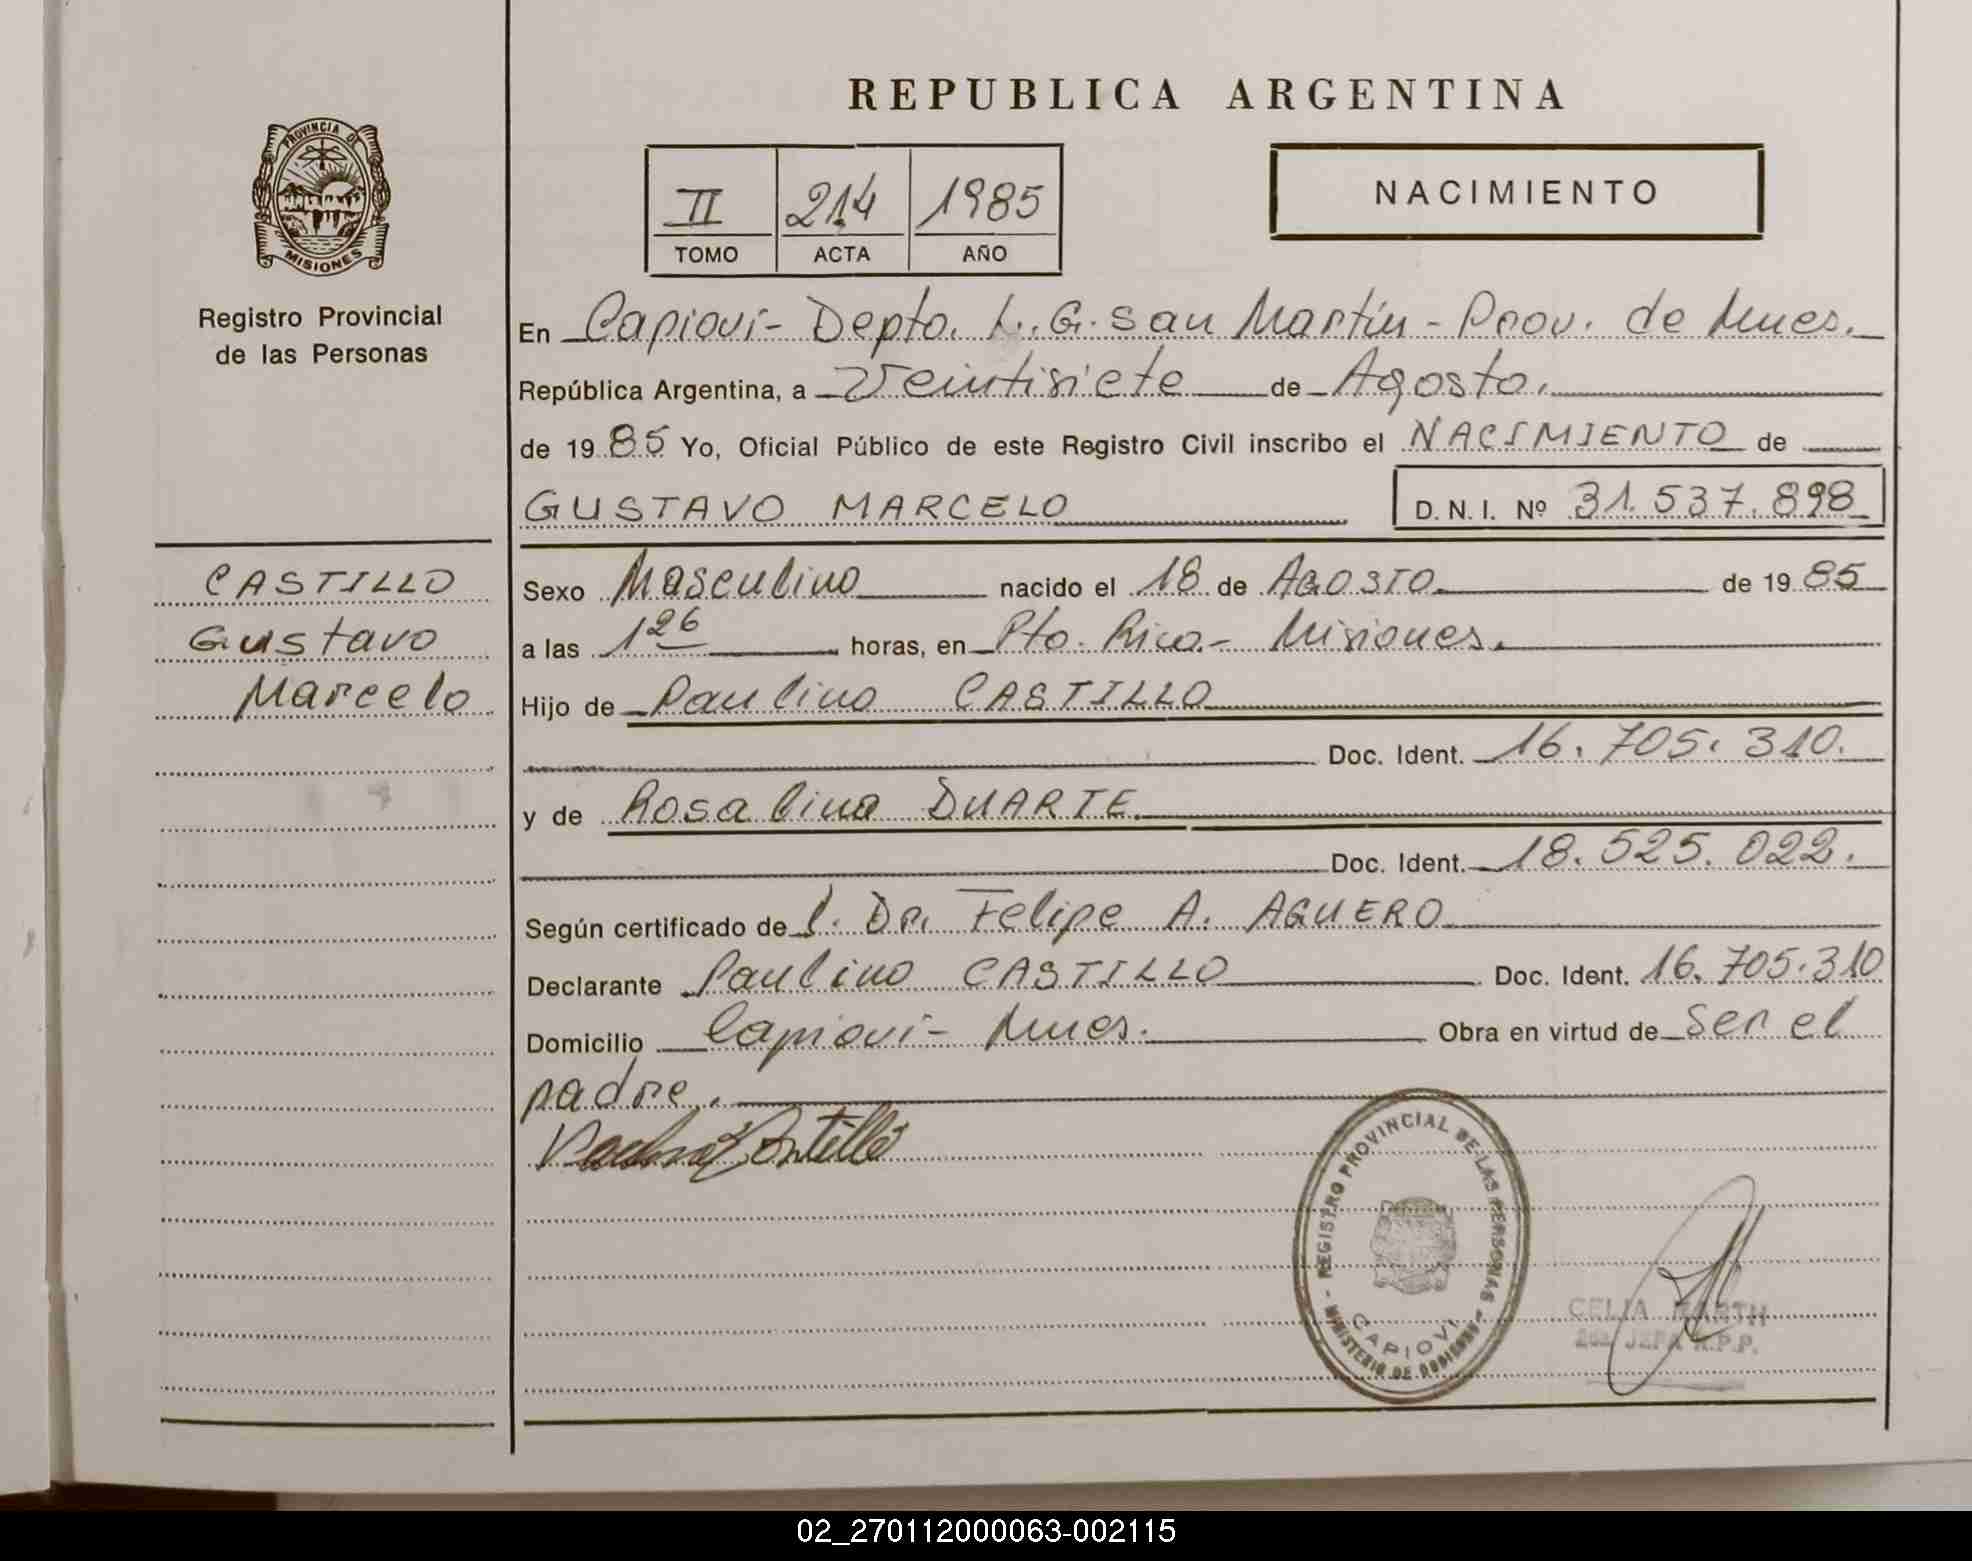 REPUBLICA ARGENTINA
PROVINCIA DE
MISIONES
Registro Provincial
de las Personas
II 214 1985
TOMO ACTA AÑO
NACIMIENTO
En Capioví- Depto. L. G. San Martín - Prov. de Mnes.
República Argentina, a Veintisiete de Agosto.
de 19 85 Yo, Oficial Público de este Registro Civil inscribo el NACIMIENTO de
GUSTAVO MARCELO D. N. I. Nº 31.537.898
CASTILLO
Gustavo
Marcelo
Sexo Masculino nacido el 18 de AGOSTO de 19 85
a las 1 26 horas, en Pto. Rico.- Misiones.
Hijo de Paulino CASTILLO
Doc. Ident. 16.705.310.
y de Rosalina DUARTE.
Doc. Ident. 18.525.022.
Según certificado de l. Dr. Felipe A. AGUERO
Declarante Paulino CASTILLO Doc. Ident. 16.705.310
Domicilio Capioví- Mnes. Obra en virtud de Ser el
padre.
REGISTRO PROVINCIAL DE LAS PERSONAS
MINISTERIO DE GOBIERNO
CAPIOVI
CELIA
JEFA R.P.P.
02_270112000063-002115